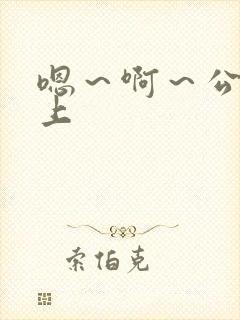 嗯～啊～公
上
索伯克